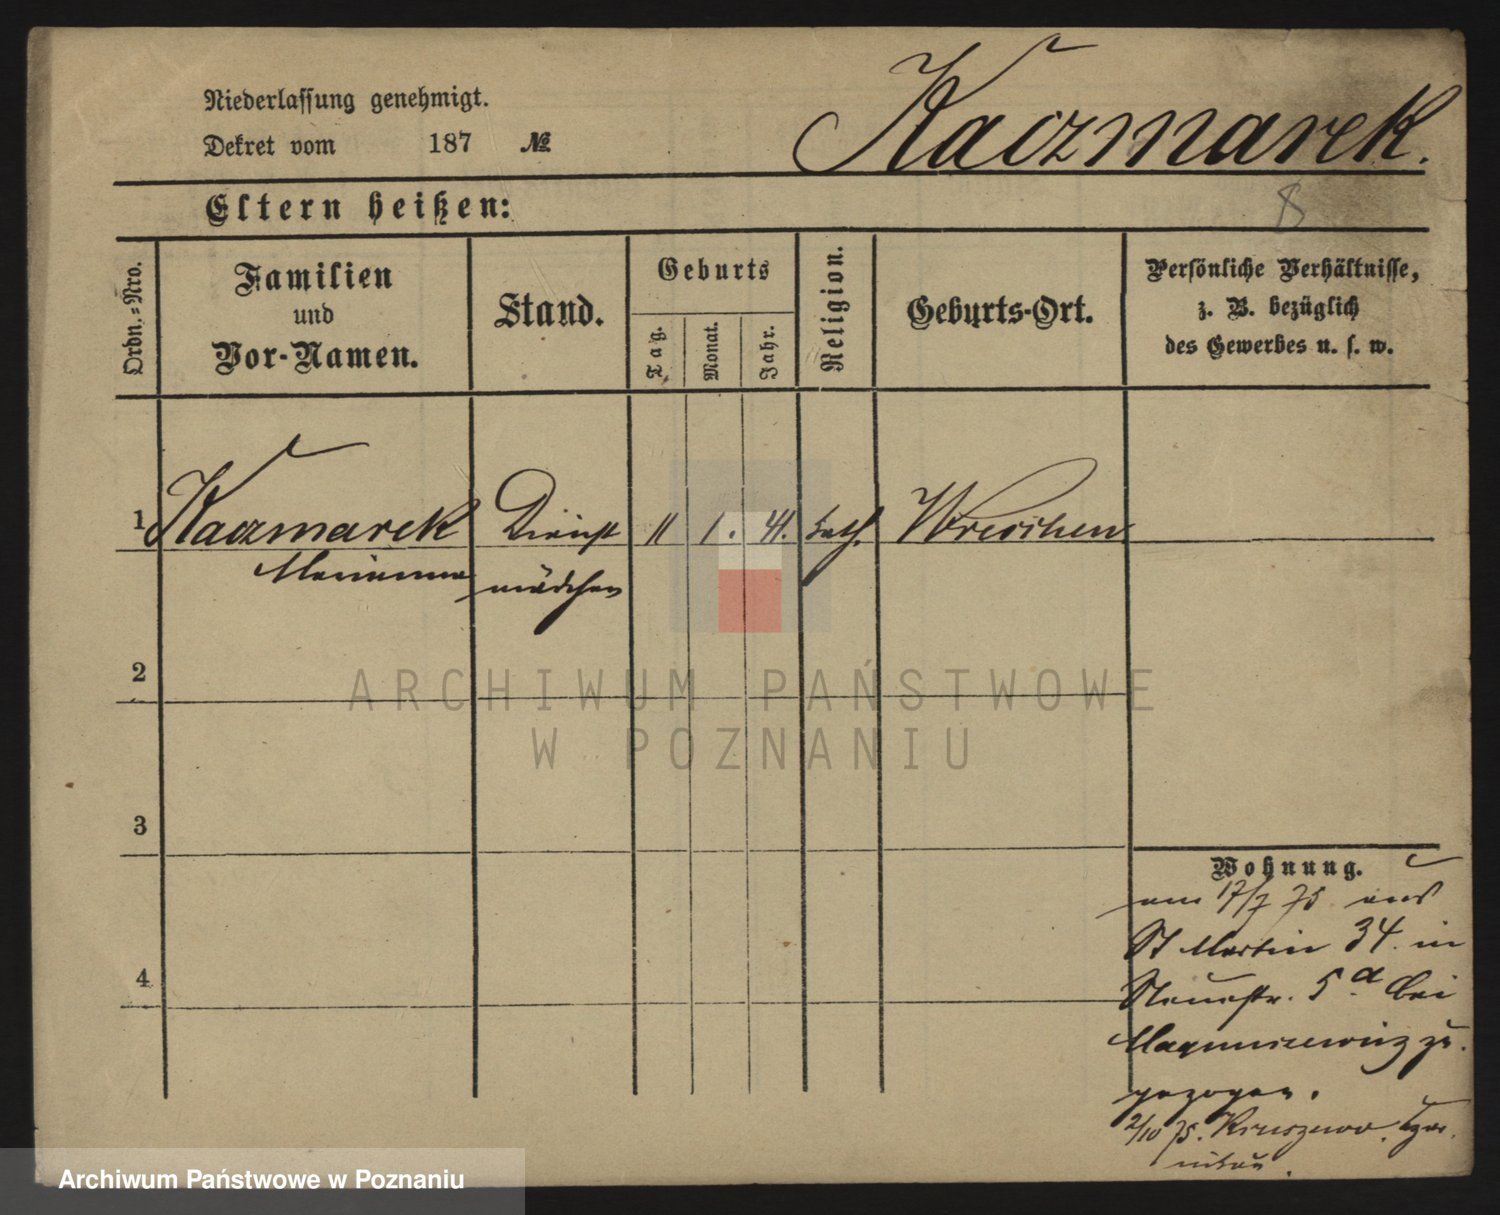 Niederlassung genehmigt.
Dekret vom 187 №
Kaczmarek.
Eltern heißen:
8
Ordn.-Nro.
Familien
und
Vor-Namen.
Stand.
Geburts
Tag.
Monat.
Jahr.
Religion.
Geburts-Ort.
Persönliche Verhältnisse,
z. B. bezüglich
des Gewerbes u. s. w.
1 Kaczmarek Dienst 11 1. 41. kath. Wreschen
Marianna mädchen
2
ARCHIWUM PAŃSTWOWE
W POZNANIU
3
Wohnung.
am 17/7 75 aus
St Martin 34. in
Neuestr. 5.a bei
zu
gezogen.
4
2/10 75. Kruszewo.
Archiwum Państwowe w Poznaniu